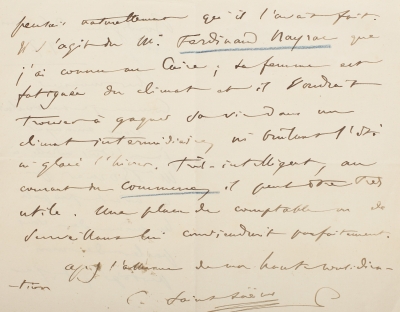 pensais naturellement qu'il l'avait fait.
Il s'agit du Mr Ferdinand Nayrac que
j'ai connu au Caire ; sa femme est
fatiguée du climat et il voudrait
trouver à gagner sa vie dans un
climat intermédiaire, ni brûlant l'été
ni glacé l'hiver. Très-intelligent, au
courant du commerce, il peut être très
utile. Une place de comptable ou de
surveillant lui conviendrait parfaitement.
de ma haute considéra-
-tion
C. Saint-Saëns